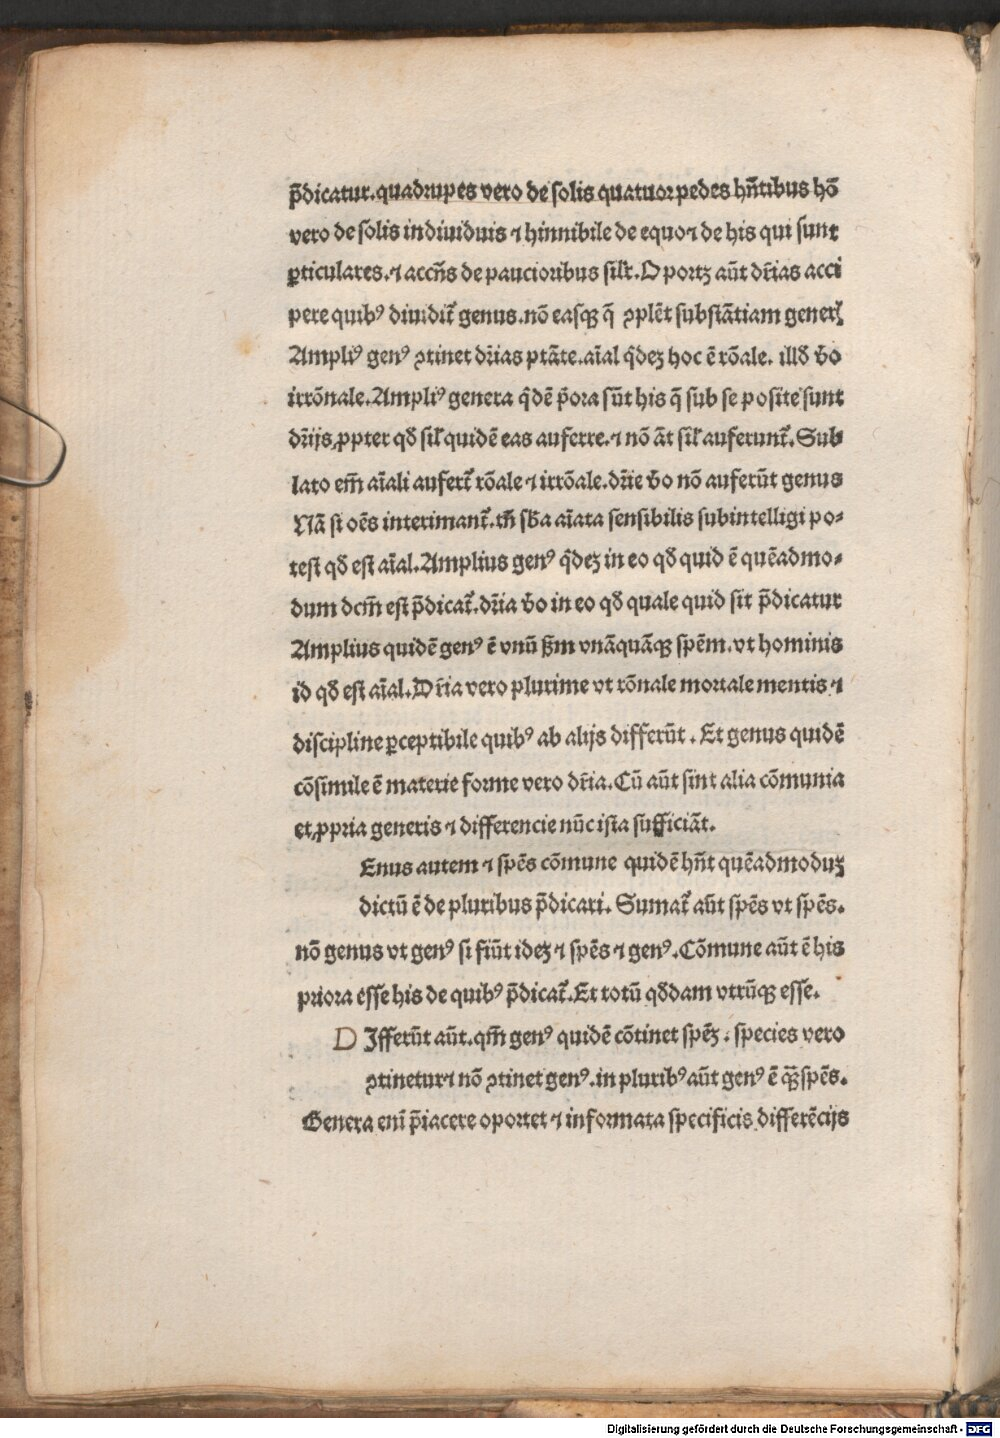 p̄dicatur.quadrupes vero de solis quatuor pedes hn̄tibus hō
vero de solis indiuiduis ⁊ hinnibile de equo⁊ de his qui sunt
ꝑticulares.⁊ accn̄s de paucioribus silr̄.Oportꝫ aūt dr̄ias acci
pere quibꝰ diuidit̄ genus.nō easqꝫ q̄ ꝯplēt substātiam generꝭ
Ampliꝰ genꝰ ꝯtinet dr̄ias ptāte.aīal q̄dez hoc ē rōale. illđ v̄o
irrōnale.Ampliꝰ genera q̄dē p̄ora sūt his q̄ sub se posite sunt
dr̄ijs,ꝓpter qđ sil̄ quidē eas auferre.⁊ nō āt sil̄ auferunt̄.Sub
lato em̄ aīali aufert̄ rōale ⁊ irrōale.dr̄ie v̄o nō auferūt genus
Nā si oēs interimant̄.tn̄ sb̄a aīata sensibilis subintelligi po⸗
test qđ est aīal.Amplius genꝰ q̄dez in eo qđ quid ē quēadmo⸗
dum dcm̄ est p̄dicat̄.dr̄ia v̄o in eo qđ quale quid sit p̄dicatur
Amplius quidē genꝰ ē vnū ẜm vnāquāqꝫ spēm.vt hominis
id qđ est aīal.Dr̄ia vero plurime vt rōnale mortale mentis ⁊
discipline ꝑceptibile quibꝰ ab alijs differūt. Et genus quidē
cōsimile ē materie forme vero dr̄ia.Cū aūt sint alia cōmunia
et ꝓpria generis ⁊ differencie nūc ista sufficiāt.
Enus autem ⁊ spēs cōmune quidē hn̄t quēadmoduꝫ
dictū ē de pluribus p̄dicari. Sumat̄ aūt spēs vt spēs.
nō genus vt genꝰ si fiūt idez ⁊ spēs ⁊ genꝰ.Cōmune aūt ē his
priora esse his de quibꝰ p̄dicat̄.Et totū qđdam vtrūqꝫ esse.
D Ifferūt aūt.qm̄ genꝰ quidē cōtinet spēꝫ. species vero
ꝯtinetur⁊ nō ꝯtinet genꝰ.in pluribꝰ aūt genꝰ ē qꝫ̄ spēs.
Genera enī p̄iacere oportet ⁊ informata specificis differēcijs
Digitalisierung gefördert durch die Deutsche Forschungsgemeinschaft - DFG